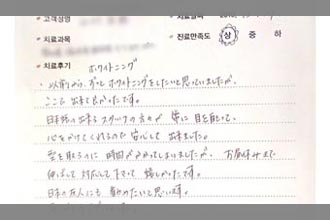 고객성명
치료날짜
치료과목
진료만족도 상 중 하
치료후기 ホワイトニング
以前から、ずっとホワイトニングをしたいと思っていましたが、
ここで出来て良かったです。
日本語の出来るスタッフの方々が 常に 目を配って、
心をかけてくれるので 安心して 出来ました。
型を取るのに 時間がかかってしまいましたが、お昼休みまで
伸ばして 対応して下さって 嬉しかったです。
日本の友人にも 勧めたいと思います。